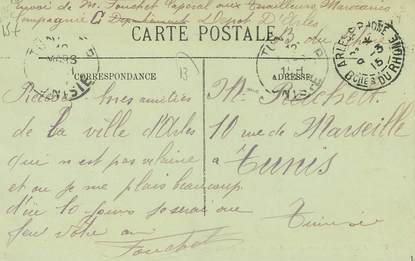 Envoi de M. Fouchet Caporal aux Tirailleurs Marocains
Compagnie C Dépôt d'Arles
15f
CARTE POSTALE
CORRESPONDANCE
ADRESSE
TUNIS
TUNISIE
ARLES-S-RHONE
BCHES DU RHONE
13
Mes amitiés
de la ville d'Arles
qui n'est pas vilaine
et où je me plais beaucoup
d'ici 10 jours je serai
votre ami
Fouchet
M. Rochette
10 rue de Marseille
Tunis
Tunisie